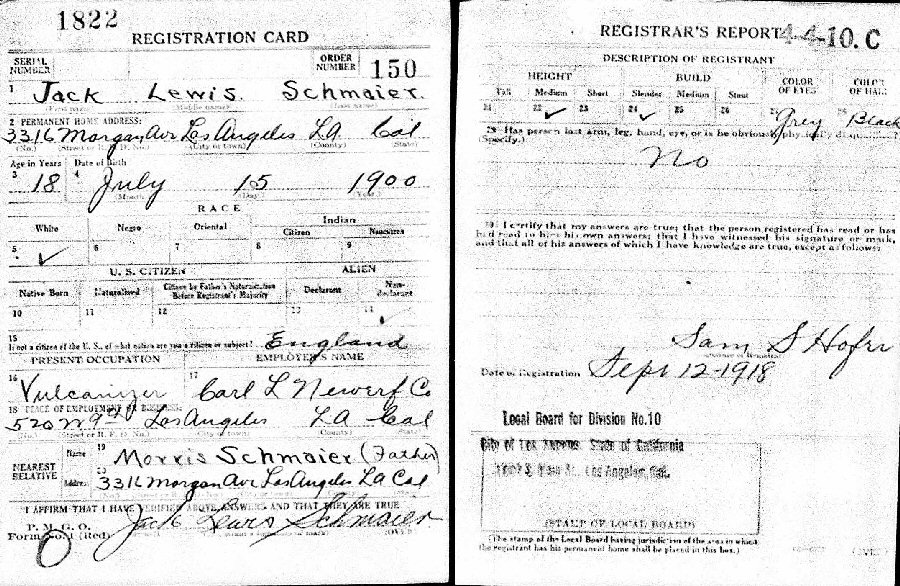 1822
REGISTRATION CARD
SERIAL NUMBER
ORDER NUMBER 150
1 Jack Lewis Schmaier.
(First name) (Middle name) (Last name)
2 PERMANENT HOME ADDRESS:
3316 Morgan Av Los Angeles LA Cal
(No.) (Street or R. F. D. No.) (City or town) (County) (State)
Age in Years Date of Birth
3 18 4 July 15 1900
(Month) (Day) (Year)
RACE
White Negro Oriental Indian
Citizen Noncitizen
5 ✓ 6 7 8 9
U. S. CITIZEN ALIEN
Native Born Naturalized Citizen by Father's Naturalization Before Registrant's Majority Declarant Non-declarant
10 11 12 13 14 ✓
15
If not a citizen of the U. S., of what nation are you a citizen or subject? England
PRESENT OCCUPATION EMPLOYER'S NAME
16 Vulcanizer 17 Carl L Newerf Co
18 PLACE OF EMPLOYMENT OR BUSINESS:
520 W 9th Los Angeles LA Cal
(No.) (Street or R. F. D. No.) (City or town) (County) (State)
NEAREST RELATIVE
Name 19 Morris Schmaier (Father)
Address 20 3316 Morgan Av Los Angeles La Cal
I AFFIRM THAT I HAVE VERIFIED ABOVE ANSWERS AND THAT THEY ARE TRUE
P. M. G. O.
Form No. 1 (Red) Jack Schmaier
(OVER)
REGISTRAR'S REPORT 4-4-10. C
DESCRIPTION OF REGISTRANT
HEIGHT BUILD COLOR OF EYES COLOR OF HAIR
Tall Medium Short Slender Medium Stout
21 22 ✓ 23 24 ✓ 25 26 Grey Black
29 Has person lost arm, leg, hand, eye, or is he obviously physically disqualified?
(Specify.)
No
30 I certify that my answers are true; that the person registered has read or has
had read to him his own answers; that I have witnessed his signature or mark,
and that all of his answers of which I have knowledge are true, except as follows:
Sam S Hofer
(Signature of Registrar)
Date of Registration Sept 12-1918
Local Board for Division No. 10
City of Los Angeles State of California
S. Main St., Los Angeles, Cal.
(STAMP OF LOCAL BOARD)
(The stamp of the Local Board having jurisdiction of the area in which
the registrant has his permanent home shall be placed in this box.)
(OVER)